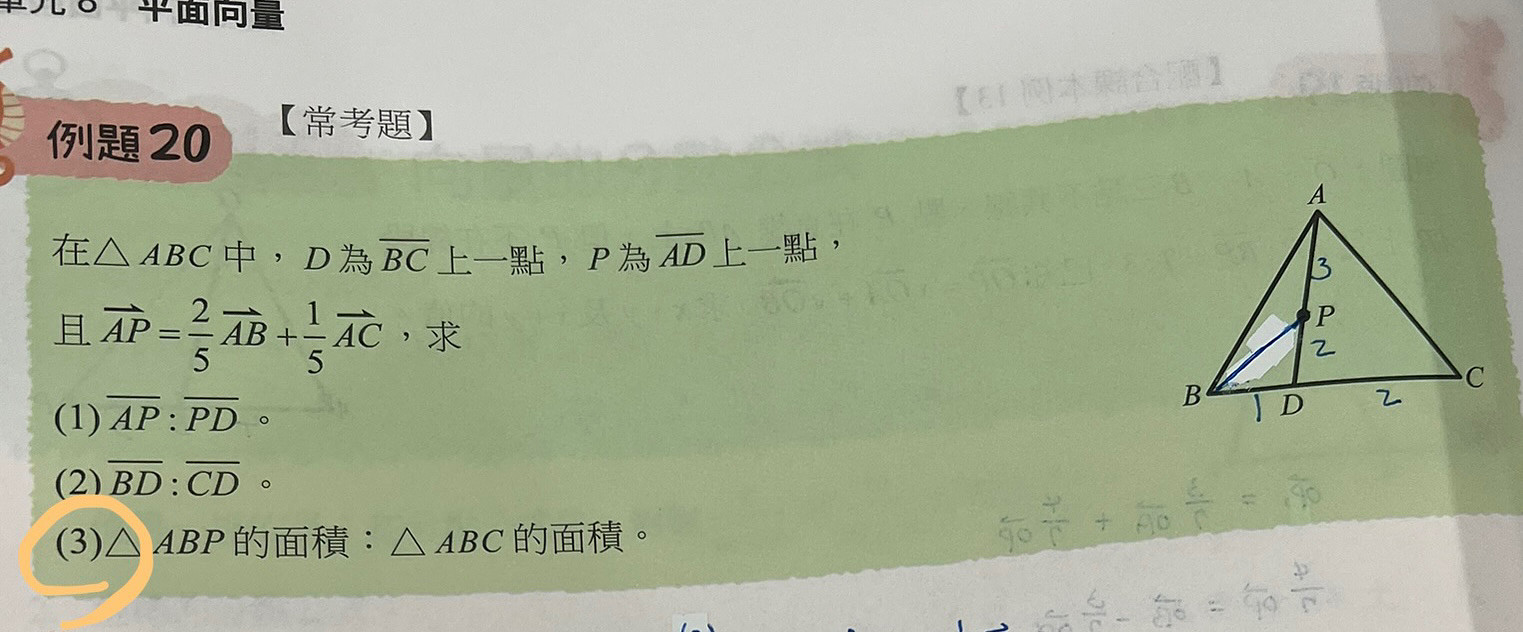 單元 8 平面向量
例題20 【常考題】
在△ABC 中，D 為 \overline{BC} 上一點，P 為 \overline{AD} 上一點，
且 \overrightarrow{AP} = \frac{2}{5}\overrightarrow{AB} + \frac{1}{5}\overrightarrow{AC}，求
(1) \overline{AP} : \overline{PD}。
(2) \overline{BD} : \overline{CD}。
(3)△ABP 的面積：△ABC 的面積。
A
3
P
2
B 1 D 2 C